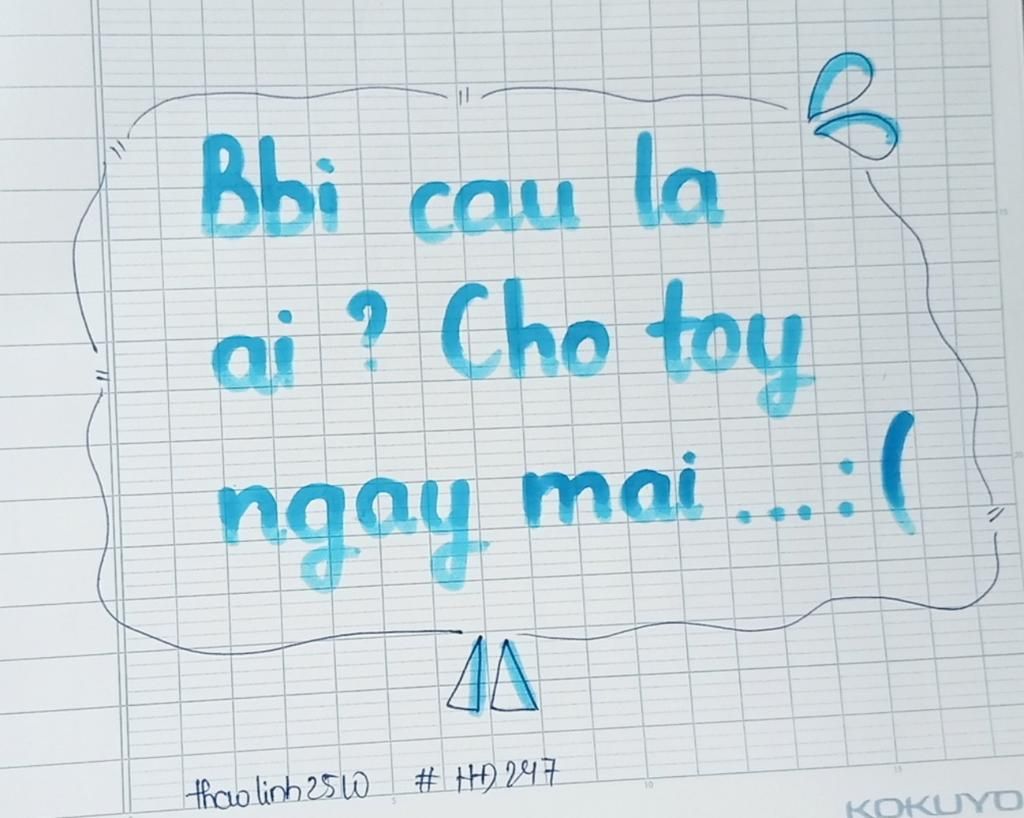 Bbi cau la
ai ? Cho toy
ngay mai ... :(
thaolinh2510 # HĐ247
KOKUYO